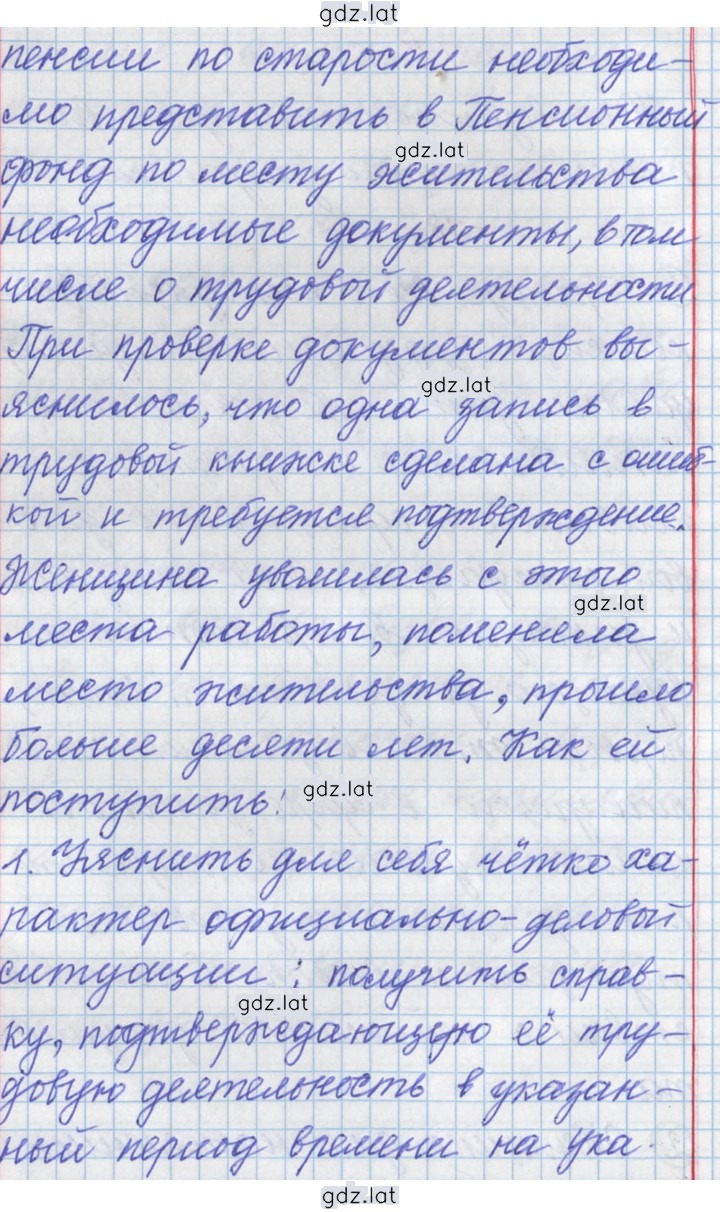 gdz.lat
пенсии по старости необходи-
мо представить в Пенсионный
gdz.lat
фонд по месту жительства
необходимые документы, в том
числе о трудовой деятельности
При проверке документов вы-
gdz.lat
яснилось, что одна запись в
трудовой книжке сделана с ошиб-
кой и требуется подтверждение.
Женщина уволилась с этого
gdz.lat
места работы, поменяла
место жительства, прошло
больше десяти лет. Как ей
gdz.lat
поступить!
1. Уяснить для себя чётко ха-
рактер официально-деловой
ситуации: получить справ-
gdz.lat
ку, подтверждающую её тру-
довую деятельность в указан-
ный период времени на ука-
gdz.lat